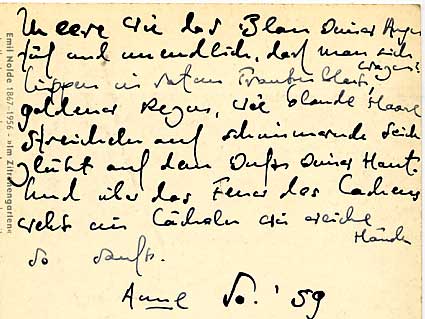 Meere wie das Blau Deiner Augen
tief und unendlich, daß man sich
wagen?
Lippen in rotem Traubenblut,
goldener Regen, wie blonde Haare
Streicheln auf schimmernde Seide
glüht auf dem Duft Deiner Haut.
Und über das Feuer des Lachens
weht ein Lächeln wie weiche
Hände
so sanft.
So. '59
Emil Nolde 1867-1956 - »Im Zitronengarten«